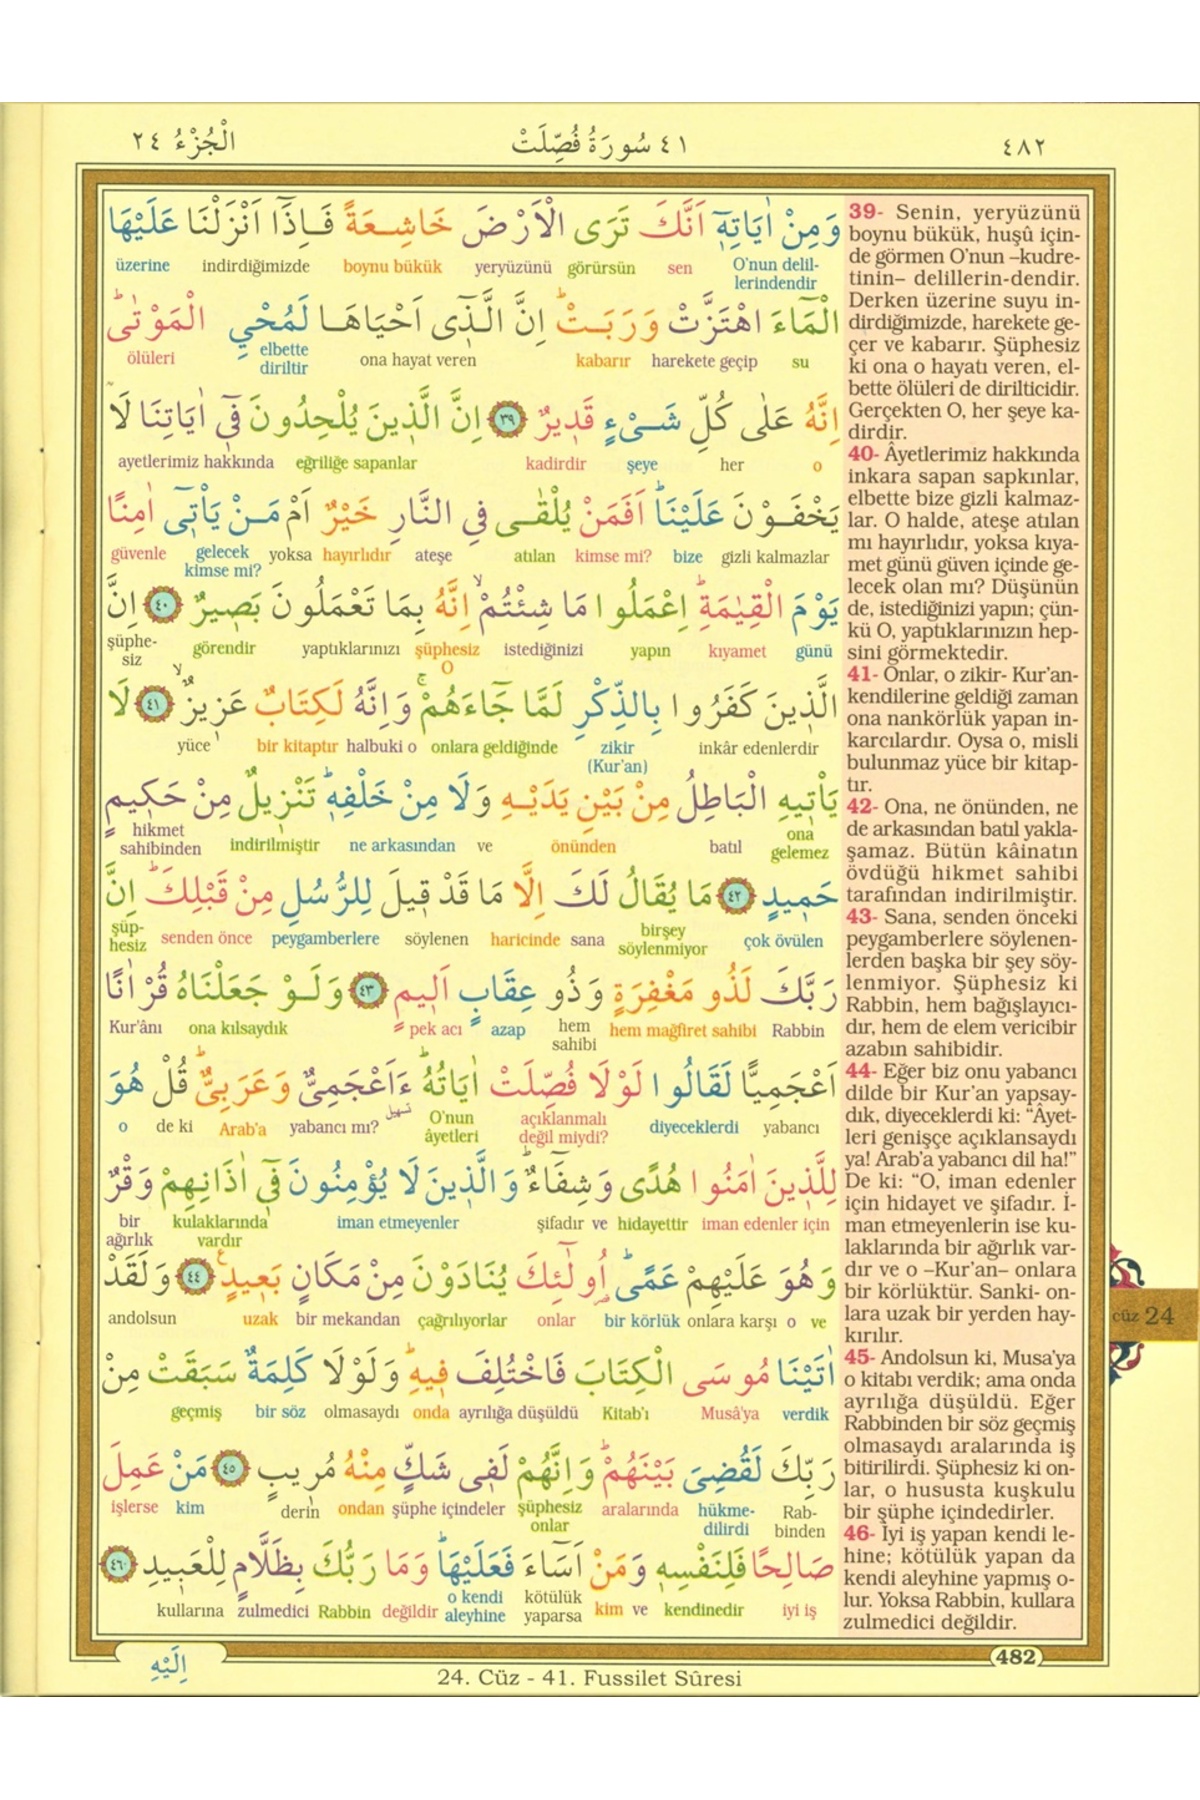 اَلْجُزْءُ ٢٤
٤١ سُورَةُ فُصِّلَتْ
٤٨٢
وَمِنْ اٰيَاتِه۪ٓ اَنَّكَ تَرَى الْاَرْضَ خَاشِعَةً فَاِذَٓا اَنْزَلْنَا عَلَيْهَا
O'nun delil-lerindendir sen görürsün yeryüzünü boynu bükük indirdiğimizde üzerine
الْمَٓاءَ اهْتَزَّتْ وَرَبَتْۜ اِنَّ الَّذ۪ٓي اَحْيَاهَا لَمُحْيِ الْمَوْتٰىۜ
su harekete geçip kabarır ona hayat veren elbette diriltir ölüleri
اِنَّهُ عَلٰى كُلِّ شَيْءٍ قَد۪يرٌ ٣٩ اِنَّ الَّذ۪ينَ يُلْحِدُونَ ف۪ٓي اٰيَاتِنَا لَا
o her şeye kadirdir eğriliğe sapanlar ayetlerimiz hakkında
يَخْفَوْنَ عَلَيْنَاۜ اَفَمَنْ يُلْقٰى فِي النَّارِ خَيْرٌ اَمْ مَنْ يَأْت۪ٓي اٰمِنًا
gizli kalmazlar bize kimse mi? atılan ateşe hayırlıdır yoksa gelecek kimse mi? güvenle
يَوْمَ الْقِيٰمَةِۜ اِعْمَلُوا مَا شِئْتُمْۙ اِنَّهُ بِمَا تَعْمَلُونَ بَص۪يرٌ ٤٠ اِنَّ
günü kıyamet yapın istediğinizi şüphesiz O yaptıklarınızı görendir şüphe-siz
الَّذ۪ينَ كَفَرُوا بِالذِّكْرِ لَمَّا جَٓاءَهُمْۚ وَاِنَّهُ لَكِتَابٌ عَز۪يزٌۙ ٤١ لَا
inkâr edenlerdir zikir (Kur'an) onlara geldiğinde halbuki o bir kitaptır yüce
يَأْت۪يهِ الْبَاطِلُ مِنْ بَيْنِ يَدَيْهِ وَلَا مِنْ خَلْفِه۪ۜ تَنْز۪يلٌ مِنْ حَك۪يمٍ
ona gelemez batıl önünden ve ne arkasından indirilmiştir hikmet sahibinden
حَم۪يدٍ ٤٢ مَا يُقَالُ لَكَ اِلَّا مَا قَدْ ق۪يلَ لِلرُّسُلِ مِنْ قَبْلِكَۜ اِنَّ
çok övülen birşey söylenmiyor sana haricinde söylenen peygamberlere senden önce şüp-hesiz
رَبَّكَ لَذُو مَغْفِرَةٍ وَذُو عِقَابٍ اَل۪يمٍ ٤٣ وَلَوْ جَعَلْنَاهُ قُرْاٰنًا
Rabbin hem mağfiret sahibi hem sahibi azap pek acı ona kılsaydık Kur'ânı
اَعْجَمِيًّا لَقَالُوا لَوْلَا فُصِّلَتْ اٰيَاتُهُۜ ءَاَعْجَمِيٌّ وَعَرَبِيٌّۜ قُلْ هُوَ
yabancı diyeceklerdi açıklanmalı değil miydi? O'nun âyetleri تسهيل yabancı mı? Arab'a de ki o
لِلَّذ۪ينَ اٰمَنُوا هُدًى وَشِفَٓاءٌۜ وَالَّذ۪ينَ لَا يُؤْمِنُونَ ف۪ٓي اٰذَانِهِمْ وَقْرٌ
iman edenler için hidayettir ve şifadır iman etmeyenler kulaklarında vardır bir ağırlık
وَهُوَ عَلَيْهِمْ عَمًىۜ اُو۬لٰٓئِكَ يُنَادَوْنَ مِنْ مَكَانٍ بَع۪يدٍ۟ ٤٤ وَلَقَدْ
ve o onlara karşı bir körlük onlar çağrılıyorlar bir mekandan uzak andolsun
اٰتَيْنَا مُوسَى الْكِتَابَ فَاخْتُلِفَ ف۪يهِۜ وَلَوْلَا كَلِمَةٌ سَبَقَتْ مِنْ
verdik Musâ'ya Kitab'ı ayrılığa düşüldü onda olmasaydı bir söz geçmiş
رَبِّكَ لَقُضِيَ بَيْنَهُمْۜ وَاِنَّهُمْ لَف۪ي شَكٍّ مِنْهُ مُر۪يبٍ ٤٥ مَنْ عَمِلَ
Rab-binden hükme-dilirdi aralarında şüphesiz onlar şüphe içindeler ondan derin kim işlerse
صَالِحًا فَلِنَفْسِه۪ وَمَنْ اَسَٓاءَ فَعَلَيْهَاۜ وَمَا رَبُّكَ بِظَلَّامٍ لِلْعَب۪يدِ ٤٦
iyi iş kendinedir ve kim kötülük yaparsa o kendi aleyhine değildir Rabbin zulmedici kullarına
39- Senin, yeryüzünü
boynu bükük, huşû için-
de görmen O'nun –kudre-
tinin– delillerin-dendir.
Derken üzerine suyu in-
dirdiğimizde, harekete ge-
çer ve kabarır. Şüphesiz
ki ona o hayatı veren, el-
bette ölüleri de dirilticidir.
Gerçekten O, her şeye ka-
dirdir.
40- Âyetlerimiz hakkında
inkara sapan sapkınlar,
elbette bize gizli kalmaz-
lar. O halde, ateşe atılan
mı hayırlıdır, yoksa kıya-
met günü güven içinde ge-
lecek olan mı? Düşünün
de, istediğinizi yapın; çün-
kü O, yaptıklarınızın hep-
sini görmektedir.
41- Onlar, o zikir- Kur'an-
kendilerine geldiği zaman
ona nankörlük yapan in-
karcılardır. Oysa o, misli
bulunmaz yüce bir kitap-
tır.
42- Ona, ne önünden, ne
de arkasından batıl yakla-
şamaz. Bütün kâinatın
övdüğü hikmet sahibi
tarafından indirilmiştir.
43- Sana, senden önceki
peygamberlere söylenen-
lerden başka bir şey söy-
lenmiyor. Şüphesiz ki
Rabbin, hem bağışlayıcı-
dır, hem de elem vericibir
azabın sahibidir.
44- Eğer biz onu yabancı
dilde bir Kur'an yapsay-
dık, diyeceklerdi ki: "Âyet-
leri genişçe açıklansaydı
ya! Arab'a yabancı dil ha!"
De ki: "O, iman edenler
için hidayet ve şifadır. İ-
man etmeyenlerin ise ku-
laklarında bir ağırlık var-
dır ve o –Kur'an– onlara
bir körlüktür. Sanki- on-
lara uzak bir yerden hay-
kırılır.
45- Andolsun ki, Musa'ya
o kitabı verdik; ama onda
ayrılığa düşüldü. Eğer
Rabbinden bir söz geçmiş
olmasaydı aralarında iş
bitirilirdi. Şüphesiz ki on-
lar, o hususta kuşkulu
bir şüphe içindedirler.
46- İyi iş yapan kendi le-
hine; kötülük yapan da
kendi aleyhine yapmış o-
lur. Yoksa Rabbin, kullara
zulmedici değildir.
cüz 24
اِلَيْهِ
482
24. Cüz - 41. Fussilet Sûresi